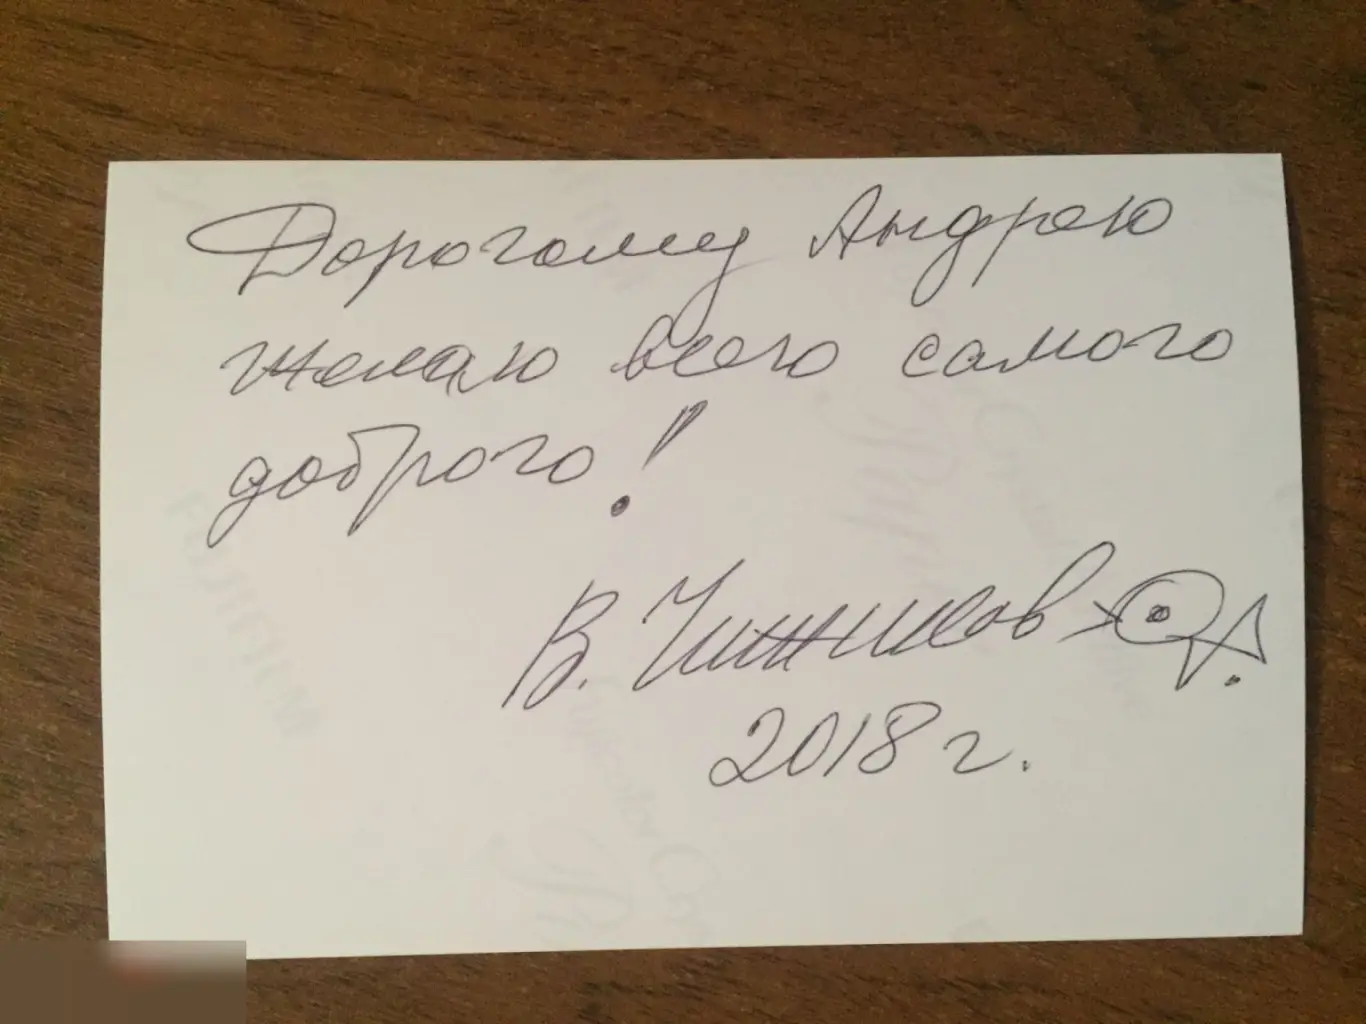 Дорогому Андрею
желаю всего самого
доброго!
В. Чижиков
2018 г.